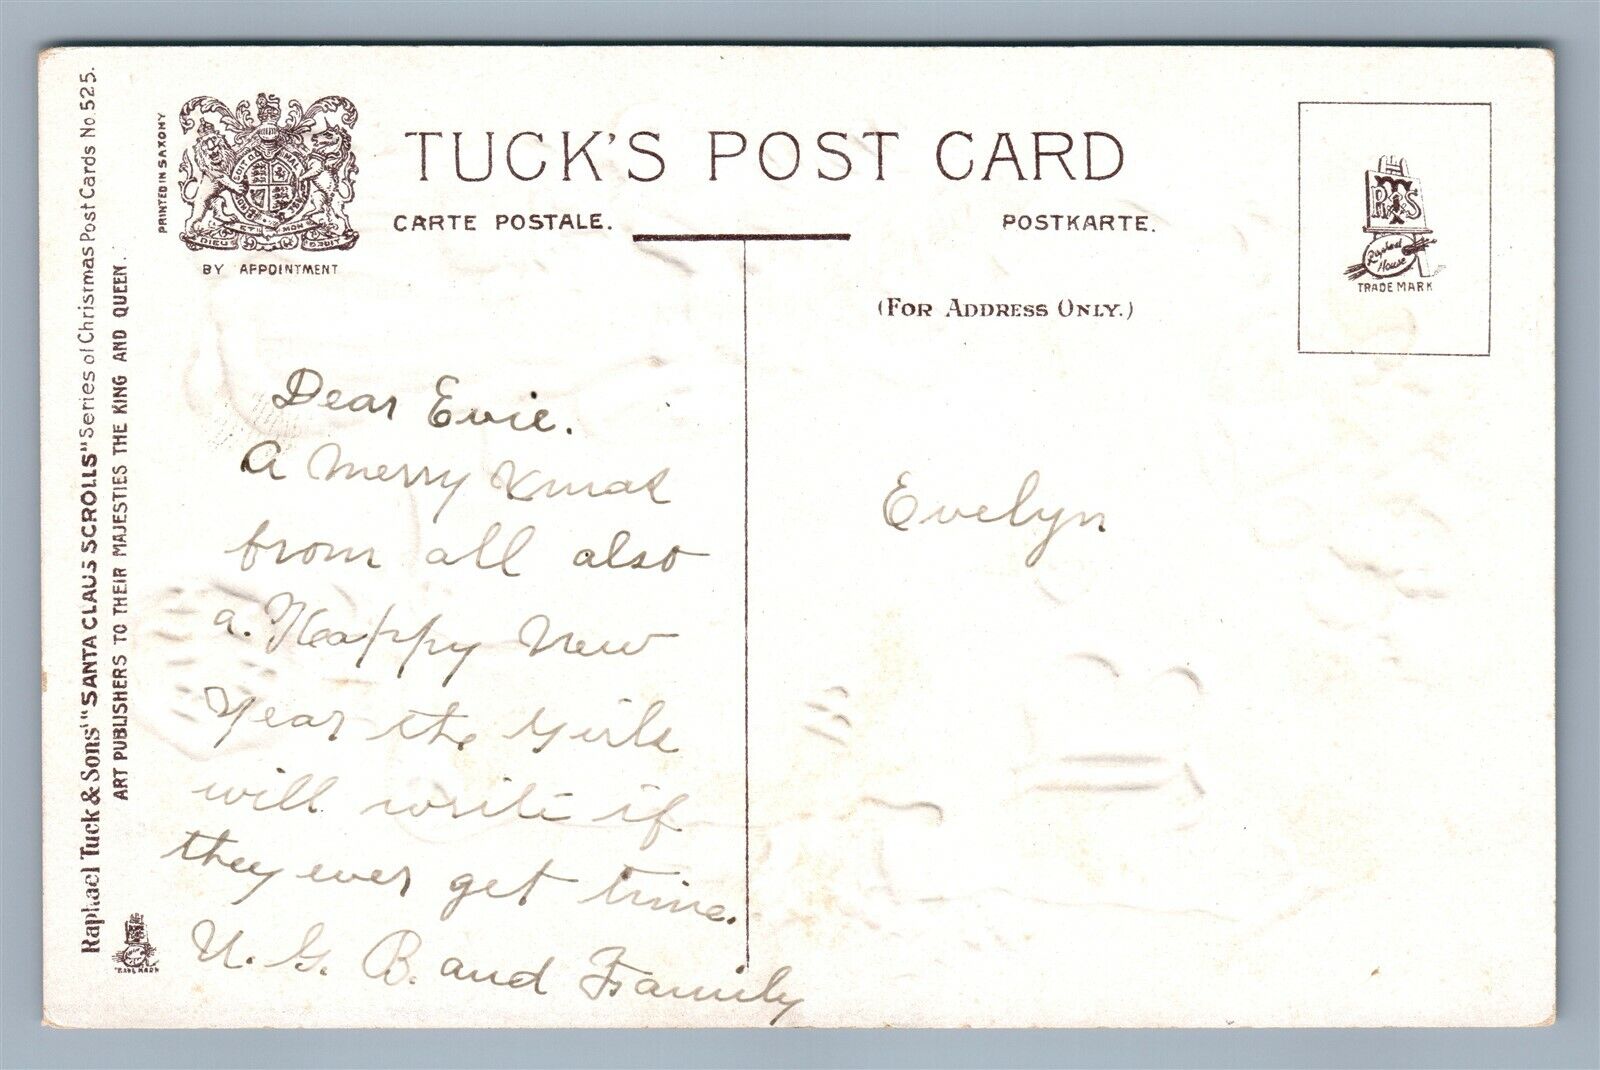 Raphael Tuck & Sons' "SANTA CLAUS SCROLLS" Series of Christmas Post Cards No. 525.
ART PUBLISHERS TO THEIR MAJESTIES THE KING AND QUEEN.
PRINTED IN SAXONY
DIEU ET MON DROIT
BY APPOINTMENT
TUCK'S POST CARD
CARTE POSTALE.
POSTKARTE.
(FOR ADDRESS ONLY.)
RTS
Raphael
House
TRADE MARK
Dear Evie.
A Merry Xmas
from all also
a. Happy New
Year the Girls
will write if
they ever get time.
U. G. B. and Family
Evelyn
TRADE MARK